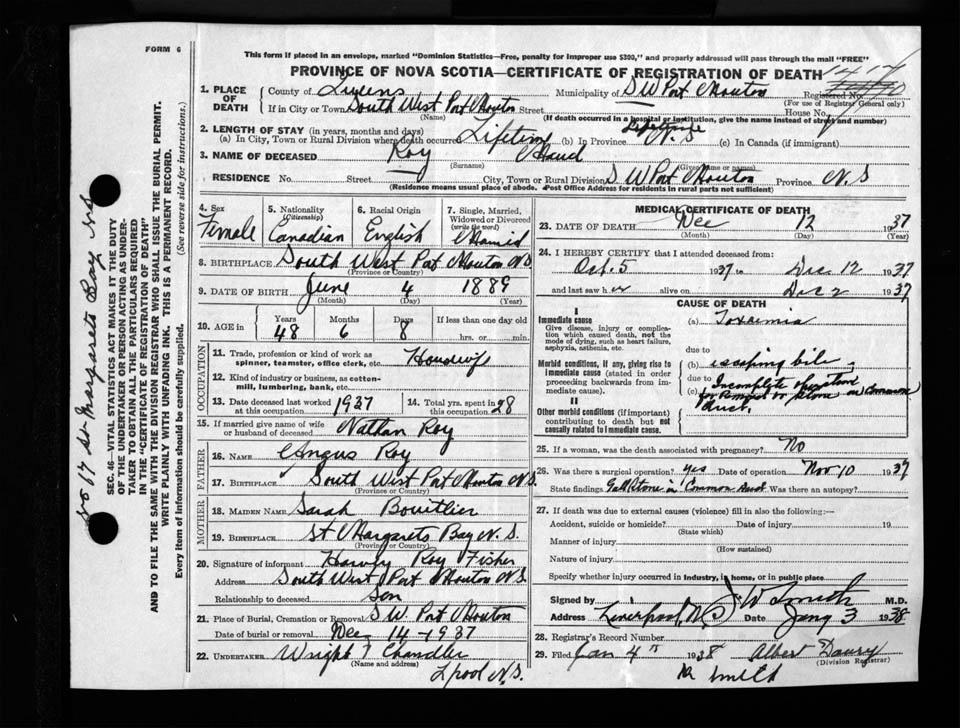 FORM 6
This form if placed in an envelope, marked "Dominion Statistics—Free, penalty for improper use $300," and properly addressed will pass through the mail "FREE"
PROVINCE OF NOVA SCOTIA—CERTIFICATE OF REGISTRATION OF DEATH
1. PLACE OF DEATH County of Queens Municipality of S W Port Mouton Registered No.
(For use of Registrar General only)
If in City or Town South West Port Mouton Street House No.
(Name) (If death occurred in a hospital or institution, give the name instead of street and number)
2. LENGTH OF STAY (in years, months and days)
(a) In City, Town or Rural Division where death occurred Lifetime (b) In Province Lifetime (c) In Canada (if immigrant)
3. NAME OF DECEASED Roy Maud
(Surname) (Given name or names)
RESIDENCE No. Street City, Town or Rural Division S W Port Mouton Province N.S
(Residence means usual place of abode. Post Office Address for residents in rural parts not sufficient)
4. Sex Female
5. Nationality (Citizenship) Canadian
6. Racial Origin English
7. Single, Married, Widowed or Divorced (write the word) Married
8. BIRTHPLACE South West Port Mouton N.S
(Province or Country)
9. DATE OF BIRTH June 4 1889
(Month) (Day) (Year)
10. AGE in Years 48 Months 6 Days 8 If less than one day old hrs. or min.
OCCUPATION
11. Trade, profession or kind of work as spinner, teamster, office clerk, etc. Housewife
12. Kind of industry or business, as cotton-mill, lumbering, bank, etc.
13. Date deceased last worked at this occupation 1937
14. Total yrs. spent in this occupation 28
15. If married give name of wife or husband of deceased Nathan Roy
FATHER
16. Name Angus Roy
17. Birthplace South West Port Mouton N.S.
(Province or Country)
MOTHER
18. Maiden Name Sarah Boutlier
19. Birthplace St Margarets Bay N.S.
(Province or Country)
20. Signature of informant Harvey Roy Fisher
Address South West Port Mouton N.S.
Relationship to deceased Son
21. Place of Burial, Cremation or Removal S W Port Mouton
Date of burial or removal Dec 14 - 1937
22. UNDERTAKER Wright F Chandler
(Name and address)
Lpool N.S.
MEDICAL CERTIFICATE OF DEATH
23. DATE OF DEATH Dec 12 1937
(Month) (Day) (Year)
24. I HEREBY CERTIFY that I attended deceased from:
Oct. 5 1937 to Dec 12 1937
and last saw her alive on Dec 2 1937
CAUSE OF DEATH
I
Immediate cause
Give disease, injury or complication which caused death, not the mode of dying, such as heart failure, asphyxia, asthenia, etc.
(a) Toxaemia
due to
Morbid conditions, if any, giving rise to immediate cause (stated in order proceeding backwards from immediate cause).
(b) escaping bile
due to
(c) Incomplete operation for removal of stone in Common duct.
II
Other morbid conditions (if important) contributing to death but not causally related to immediate cause.
25. If a woman, was the death associated with pregnancy? No
26. Was there a surgical operation? yes Date of operation Nov 10 1937
State findings Gall stone in Common duct Was there an autopsy?
27. If death was due to external causes (violence) fill in also the following:—
Accident, suicide or homicide? Date of injury 19
(State which)
Manner of injury
(How sustained)
Nature of injury
Specify whether injury occurred in industry, in home, or in public place
Signed by J W Smith M.D.
Address Liverpool, N.S Date Jany 3 1938
28. Registrar's Record Number
29. Filed Jan 4th 1938 Albert Daury
(Division Registrar)
Smith
St Margarets Bay N.S
(See reverse side for instructions.)
SEC. 46—VITAL STATISTICS ACT MAKES IT THE DUTY
OF THE UNDERTAKER OR PERSON ACTING AS UNDERTAKER TO OBTAIN ALL THE PARTICULARS REQUIRED
IN THE "CERTIFICATE OF REGISTRATION OF DEATH"
AND TO FILE THE SAME WITH THE DIVISION REGISTRAR WHO SHALL ISSUE THE BURIAL PERMIT.
WRITE PLAINLY WITH UNFADING INK. THIS IS A PERMANENT RECORD.
Every item of information should be carefully supplied.